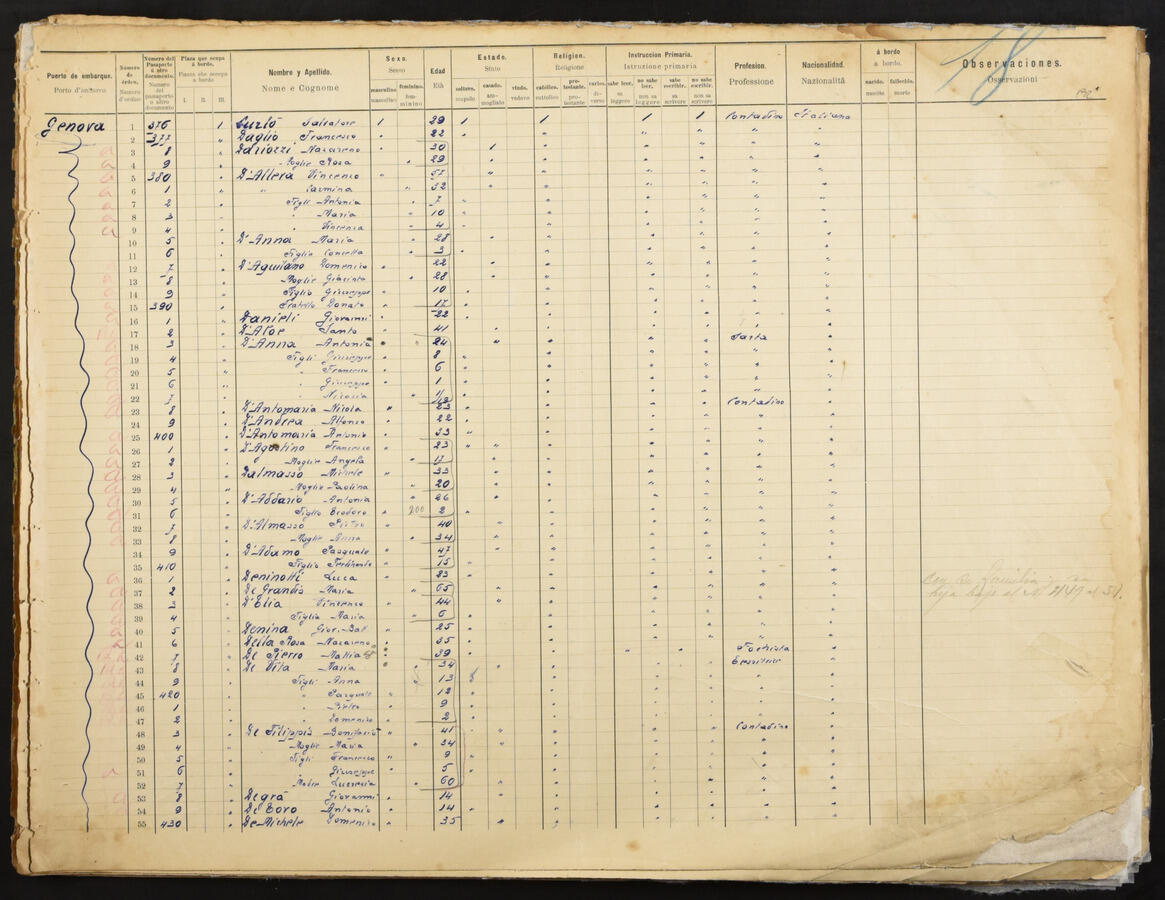 18
Puerto de embarque. Porto d'imbarco
Número de órden. Numero d'ordine
Número del Pasaporte ó altro documento. Numero del Passaporto o altro documento
Plaza que ocupa á bordo. Piazza che occupa a bordo I. II. III.
Nombre y Apellido. Nome e Cognome
Sexo. Sesso masculino maschino feminino. femminino
Edad Età
Estado. Stato soltero. scapolo casado. ammogliato viudo. vedovo
Religion. Religione católico. cattolico protestante. protestante varios. diverse
Instruccion Primaria. Istruzione primaria sabe leer. sa leggere no sabe leer. non sa leggere sabe escribir. sa scrivere no sabe escribir. non sa scrivere
Profesion. Professione
Nacionalidad. Nazionalità
á bordo a bordo. nacido. nascita fallecido. morto
Observaciones. Osservazioni
Genova 1 376 1 Curlò Salvatore 1 29 1 1 1 1 Contadino Italiana
2 377 " Daglio Francesco " 22 " " " " " "
3 8 " Dariozzi Nazareno " 30 1 " " " " "
4 9 " Moglie Rosa " 29 " " " " " "
5 380 " D'Allera Vincenzo " 57 " " " " " "
6 1 " " Carmina " 52 " " " " "
7 2 " Figli Antonia " 7 " " " " " "
8 3 " " Maria " 10 " " " " " "
9 4 " " Vincenza " 4 " " " " " "
10 5 " D'Anna Maria " 28 " " " " " "
11 6 " Figlia Concetta " 3 " " " " " "
12 7 " D'Aquilano Domenico " 22 " " " " " "
13 8 " Moglie Giacinta " 28 " " " " " "
14 9 " Figlio Giuseppe " 10 " " " " " "
15 390 " Fratello Donato " 17 " " " " " "
16 1 " Danieli Giovanni " 22 " " " " " "
17 2 " D'Aloe Santo " 41 " " " " " "
18 3 " D'Anna Antonia " 24 " " " " Sarta "
19 4 " Figli Giuseppe 8 " " " " " "
20 5 " " Francesco 6 " " " " " "
21 6 " " Giuseppe 1 " " " " " "
22 7 " " " " " " " "
23 8 " D'Antomaria Nicola " 23 " " " " Contadino "
24 9 " D'Andrea Alfonso " 22 " " " " " "
25 400 " D'Antomaria Antonio " 33 " " " " " "
26 1 " D'Agostino Francesco " 23 " " " " " "
27 2 " Moglie Angela " 17 " " " " " "
28 3 " Dalmasso Michele " 33 " " " " " "
29 4 " Moglie Paolina " 20 " " " " " "
30 5 " D'Addario Antonia " 26 " " " " " "
31 6 " Figlio Teodoro " 200 2 " " " " " "
32 7 " D'Almasso Pietro " 40 " " " " " "
33 8 " Moglie Anna " 34 " " " " " "
34 9 " D'Adamo Pasquale " 47 " " " " " "
35 410 " Figlio Ferdinando " 15 " " " " " "
36 1 " Deninotti Luca " 23 " " " " " "
37 2 " De Grandis Maria " 65 " " " " " "
38 3 " D'Elia Vincenzo " 44 " " " " " "
39 4 " Figlia Maria " 6 " " " " " "
40 5 " Denina Giov. Bat " 25 " " " " " "
41 6 " Della Rosa Nazareno " 35 " " " " " "
42 7 " De Pierro Mattia " 39 " " " " Fochista "
43 8 " De Vita Maria " 34 " " " "
44 9 " Figli Anna " 13 " " " " "
45 420 " " Pasquale " 12 " " " " "
46 1 " " Pietro " 9 " " " " "
47 2 " " Domenico " 2 " " " " "
48 3 " De Filippis Bonifacio " 41 " " " " Contadino "
49 4 " Moglie Maria " 34 " " " " " "
50 5 " Figli Francesco " 9 " " " " " "
51 6 " " Giuseppe 5 " " " " " "
52 7 " Madre Lucrezia " 60 " " " " " "
53 8 " Degrà Giovanni " 14 " " " " "
54 9 " De Toro Antonio " 14 " " " " " "
55 430 " De Michele Domenico " 35 " " " " " "